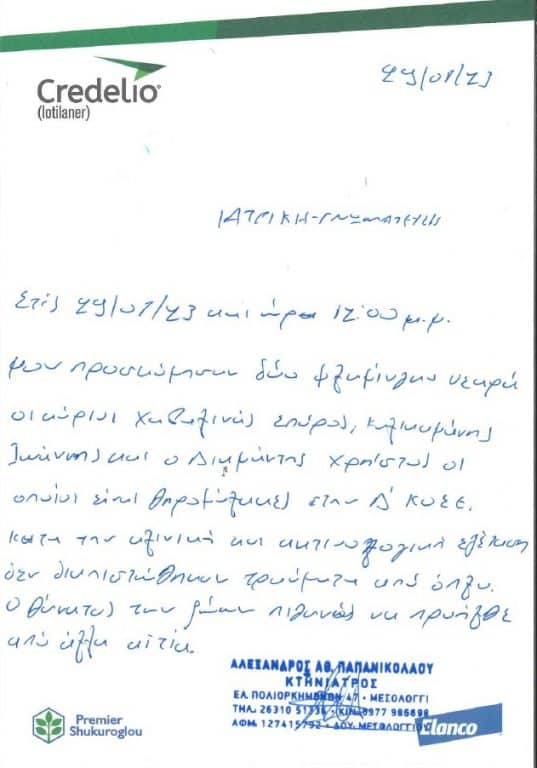 Credelio
(lotilaner)
29/01/23
ΙΑΤΡΙΚΗ-ΓΝΩΜΑΤΕΥΣΗ
Στις 29/01/23 και ώρα 12:00 μ.μ.
μου προσκόμησαν δύο φλαμίνγκο νεκρά
οι κύριοι Σπύρος,
Ιωάννης και ο Διαμάντης Χρήστος οι
οποίοι είναι θηροφύλακες στην Δ' ΚΟΣΕ.
κατα την κλινική και ακτινολογική εξέταση
δεν διαπιστώθηκαν τραύματα από όπλο.
Ο θάνατος των ζώων πιθανώς να προήλθε
από άλλα αίτια.
ΑΛΕΞΑΝΔΡΟΣ ΑΘ. ΠΑΠΑΝΙΚΟΛΑΟΥ
ΚΤΗΝΙΑΤΡΟΣ
ΕΛ. ΠΟΛΙΟΡΚΗΜΕΝΩΝ 47 - ΜΕΣΟΛΟΓΓΙ
ΤΗΛ. 26310 - ΚΙΝ. 6977 986698
ΑΦΜ. 127415792 - ΔΟΥ. ΜΕΣΟΛΟΓΓΙΟΥ
Premier
Shukuroglou
Elanco